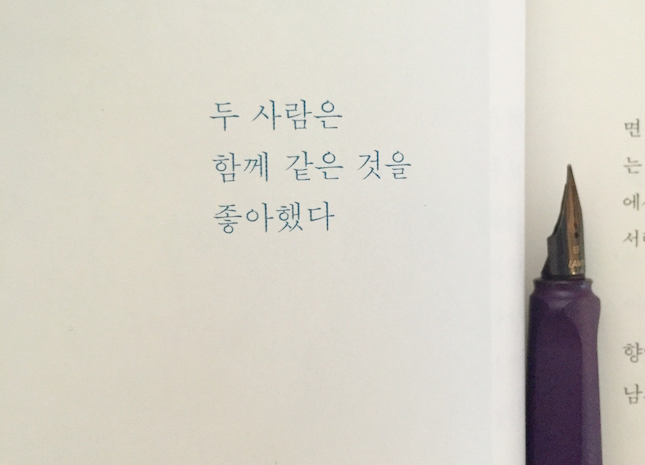 두 사람은
함께 같은 것을
좋아했다
면
는
에서
향
남
LAMY